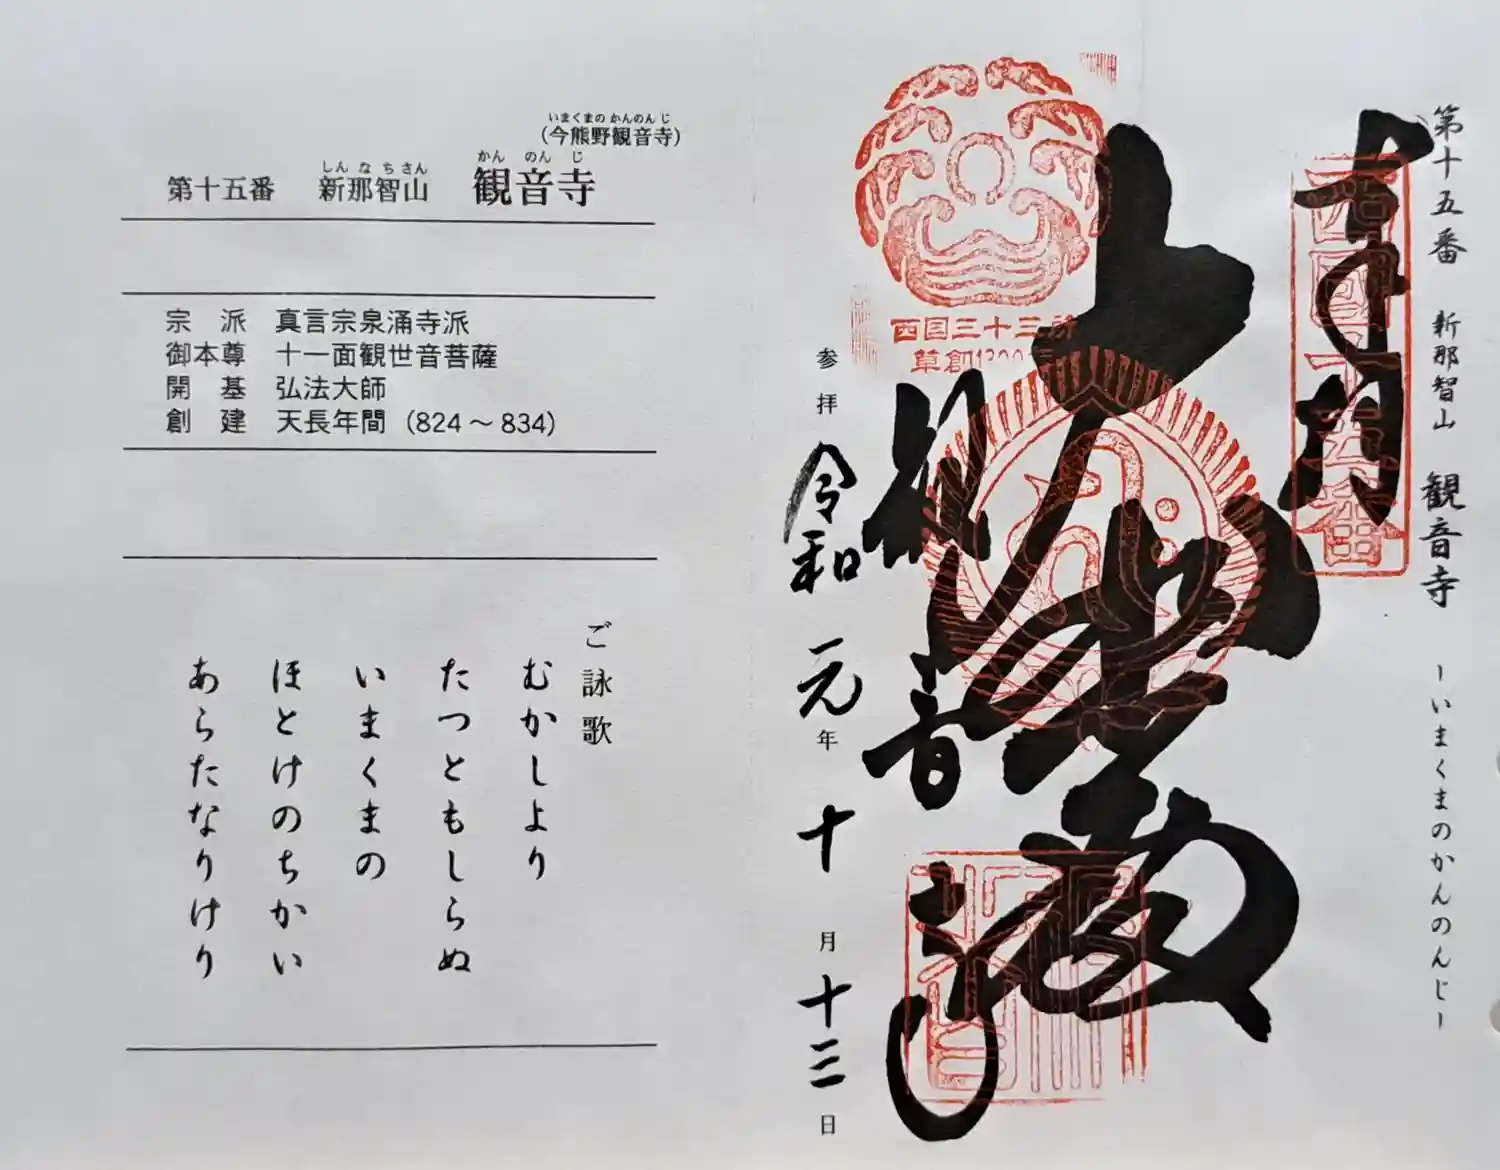 いまくまの かんのん じ
(今熊野観音寺)
しん な ち さん かん のん じ
第十五番 新那智山 観音寺
宗 派 真言宗泉涌寺派
御本尊 十一面観世音菩薩
開 基 弘法大師
創 建 天長年間 (824～834)
ご詠歌
むかしより
たつともしらぬ
いまくまの
ほとけのちかい
あらたなりけり
第十五番 新那智山 観音寺 ーいまくまのかんのんじー
西国十五番
西国三十三所
草創1300
参拝 令和元年十月十三日